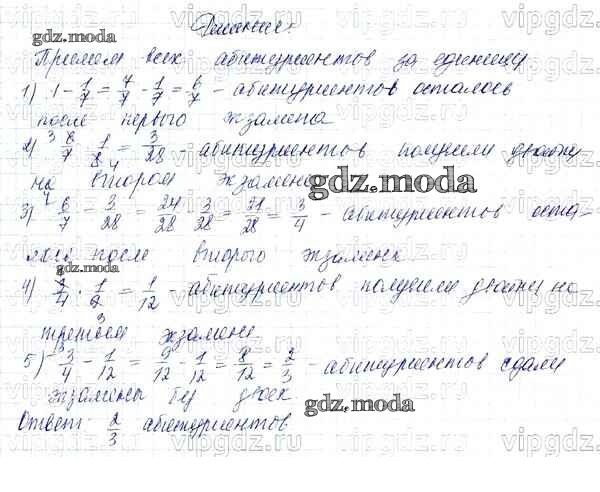 Решение:
gdz.moda
Примем всех абитуриентов за единицу
1) 1 - 1/7 = 7/7 - 1/7 = 6/7 - абитуриентов осталось
после первого экзамена
2) 6/7 · 1/8 = 3/28 - абитуриентов получили двойку
на втором экзамене
gdz.moda
3) 6/7 - 3/28 = 24/28 - 3/28 = 21/28 = 3/4 - абитуриентов оста-
лось после второго экзамена
gdz.moda
4) 3/4 · 1/9 = 1/12 - абитуриентов получили двойку на
третьем экзамене
5) 3/4 - 1/12 = 9/12 - 1/12 = 8/12 = 2/3 - абитуриентов сдали
экзамены без двоек
gdz.moda
Ответ: 2/3 абитуриентов
vipgdz.ru